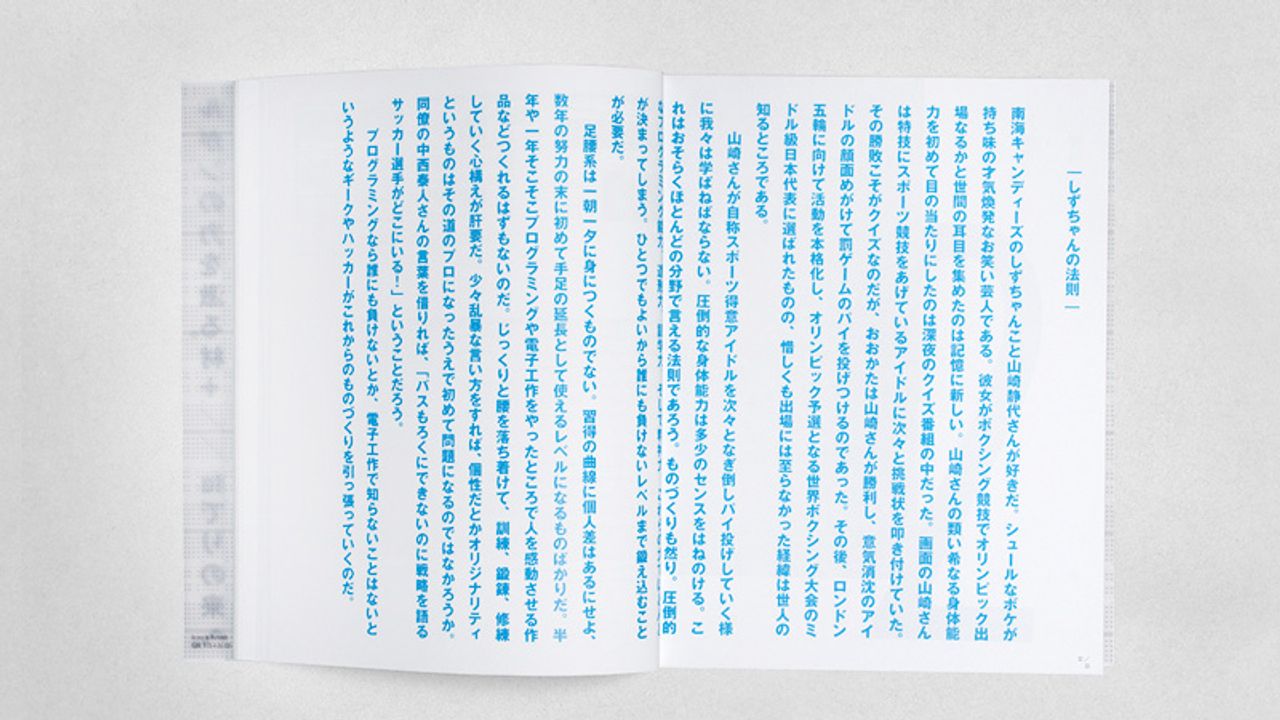 ―しずちゃんの法則―
南海キャンディーズのしずちゃんこと山崎静代さんが好きだ。シュールなボケが
持ち味の才気煥発なお笑い芸人である。彼女がボクシング競技でオリンピック出
場なるかと世間の耳目を集めたのは記憶に新しい。山崎さんの類い希なる身体能
力を初めて目の当たりにしたのは深夜のクイズ番組の中だった。画面の山崎さん
は特技にスポーツ競技をあげているアイドルに次々と挑戦状を叩き付けていた。
その勝敗こそがクイズなのだが、おおかたは山崎さんが勝利し、意気消沈のアイ
ドルの顔面めがけて罰ゲームのパイを投げつけるのであった。その後、ロンドン
五輪に向けて活動を本格化し、オリンピック予選となる世界ボクシング大会のミ
ドル級日本代表に選ばれたものの、惜しくも出場には至らなかった経緯は世人の
知るところである。
山崎さんが自称スポーツ得意アイドルを次々となぎ倒しパイ投げしていく様
に我々は学ばねばならない。圧倒的な身体能力は多少のセンスをはねのける。こ
れはおそらくほとんどの分野で言える法則であろう。ものづくりも然り。圧倒的
が決まってしまう。ひとつでもよいから誰にも負けないレベルまで鍛え込むこと
が必要だ。
足腰系は一朝一夕に身につくものでない。習得の曲線に個人差はあるにせよ、
数年の努力の末に初めて手足の延長として使えるレベルになるものばかりだ。半
年や一年そこそこプログラミングや電子工作をやったところで人を感動させる作
品などつくれるはずもないのだ。じっくりと腰を落ち着けて、訓練、鍛錬、修練
していく心構えが肝要だ。少々乱暴な言い方をすれば、個性だとかオリジナリティ
というものはその道のプロになったうえで初めて問題になるのではなかろうか。
同僚の中西泰人さんの言葉を借りれば、「パスもろくにできないのに戦略を語る
サッカー選手がどこにいる！」ということだろう。
プログラミングなら誰にも負けないとか、電子工作で知らないことはないと
いうようなギークやハッカーがこれからのものづくりを引っ張っていくのだ。